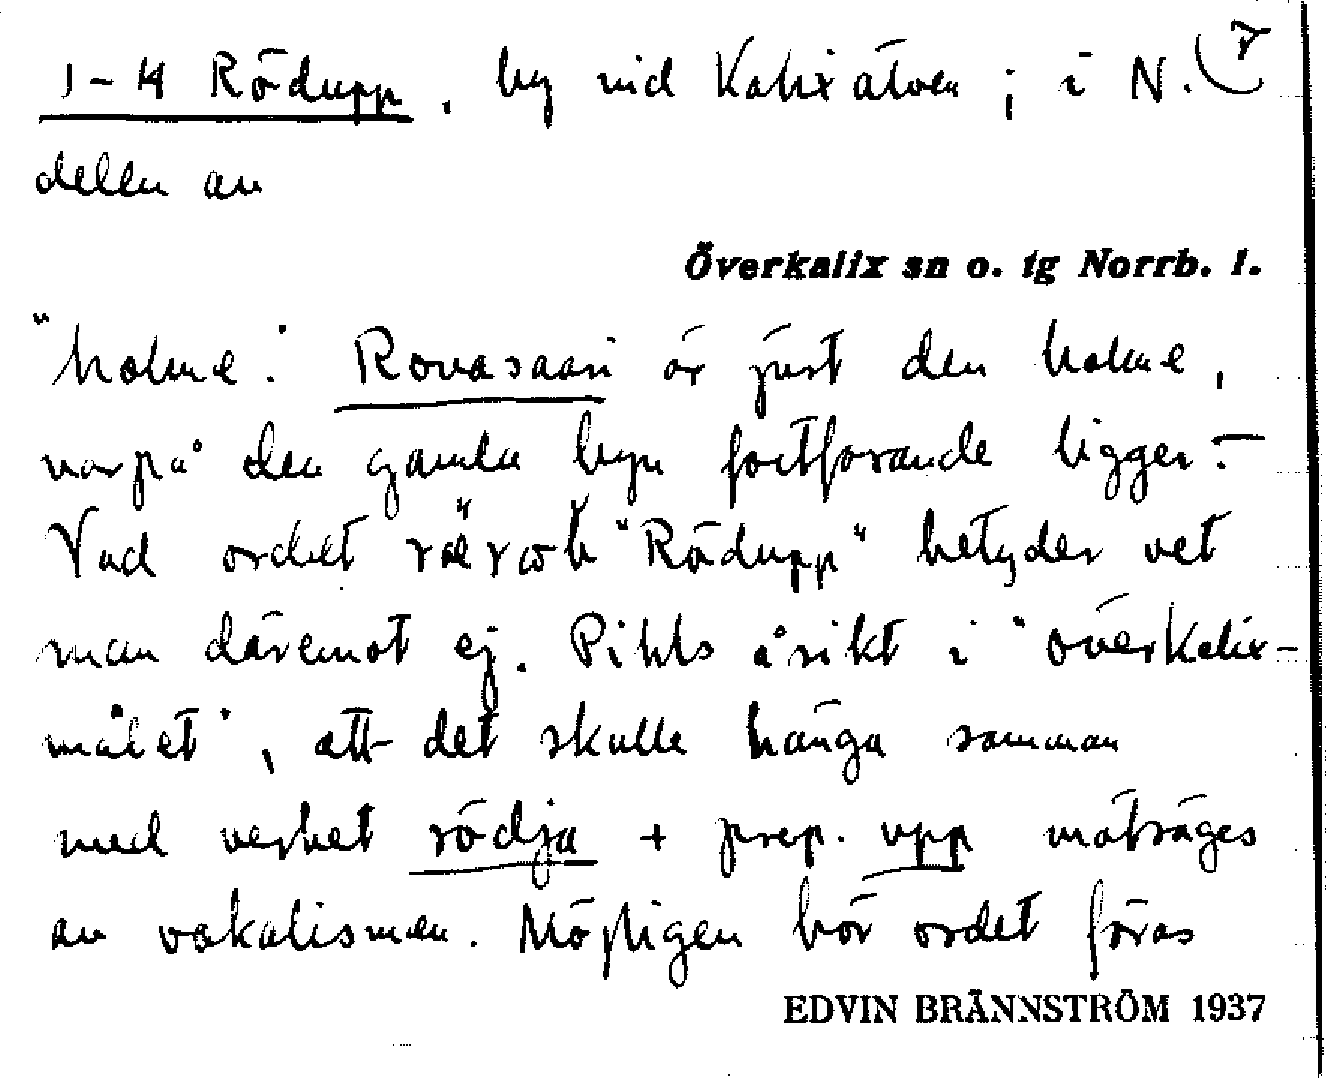 1-4 Rödupp, by vid Kalixälven; i N.
delen av
Överkalix sn o. tg Norrb. l.
"holme". Rovasaari är just den holme,
varpå den gamla byn fortfarande ligger. –
Vad ordet "Rödupp" betyder vet
man däremot ej. Pihls åsikt i "Överkalix-
målet", att det skulle hänga samman
med verbet rödja + prep. upp motsäges
av vokalismen. Möjligen bör ordet föras
EDVIN BRÄNNSTRÖM 1937